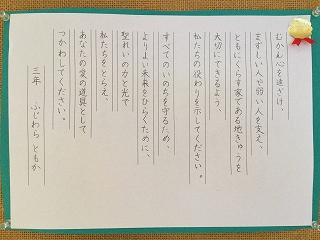 むかん心を遠ざけ、
まずしい人や弱い人を支え、
ともにくらす家である地きゅうを
大切にできるよう、
私たちの役わりを示してください。
すべてのいのちを守るため、
よりよい未来をひらくために、
聖れいの力と光で
私たちをとらえ、
あなたの愛の道具として
つかわしてください。
三年 ふじわら ともか